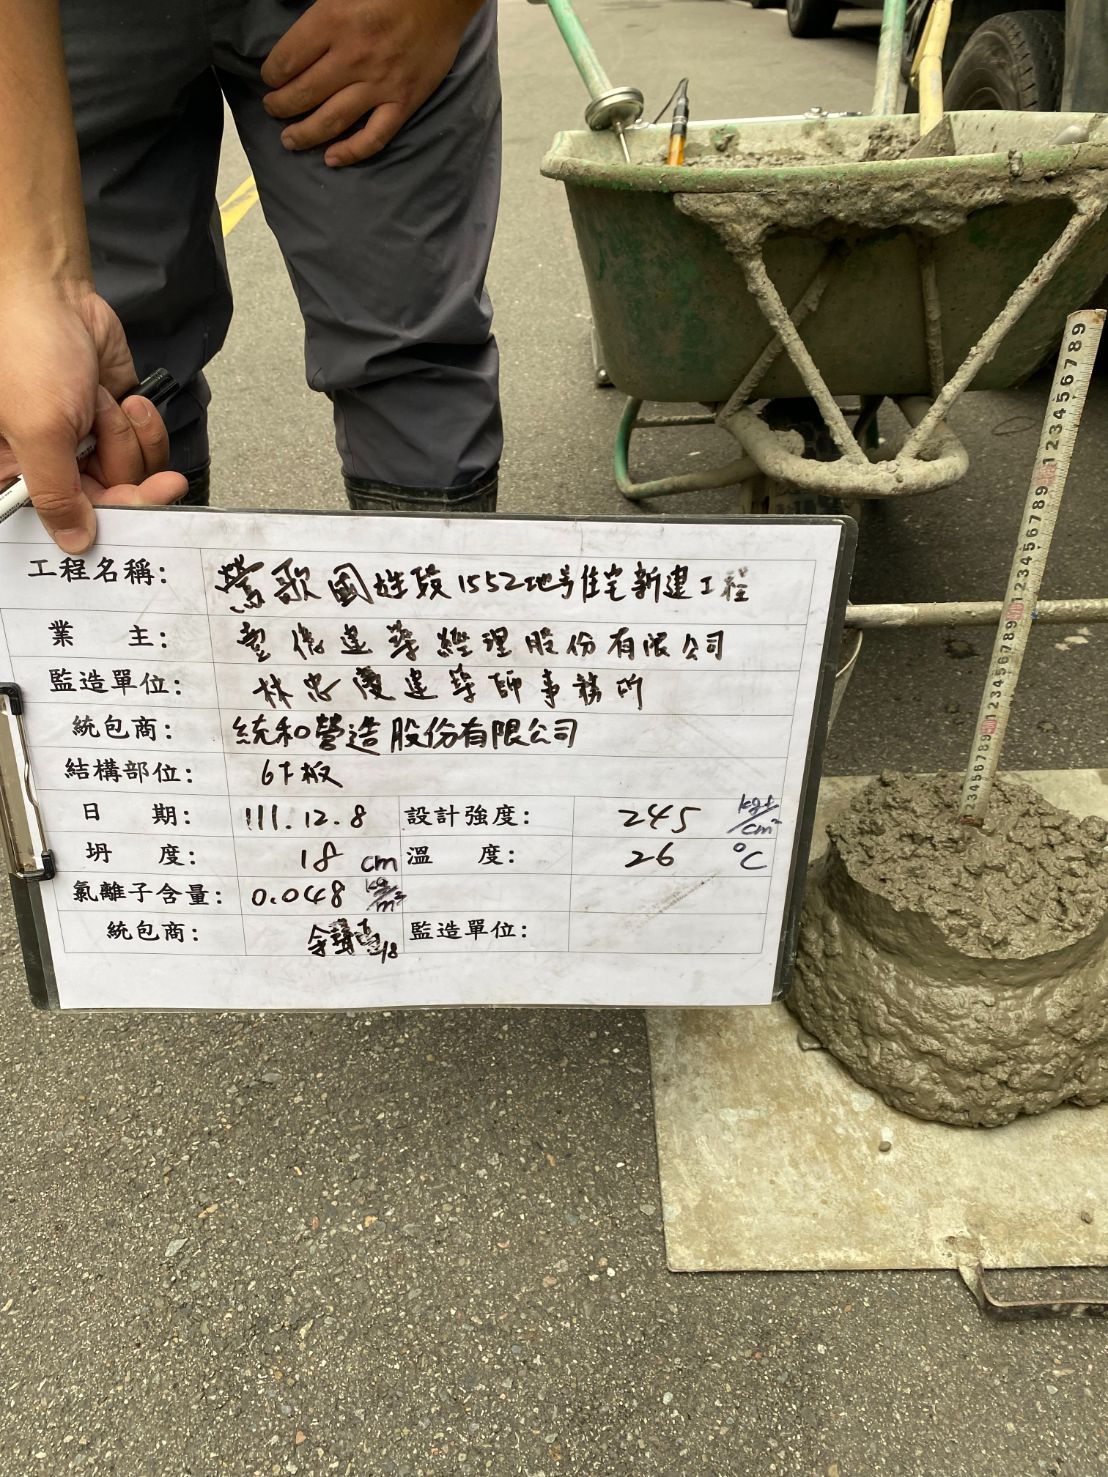 工程名稱: 鶯歌國姓段1552地号住宅新建工程
業 主: 建築經理股份有限公司
監造單位: 林忠慶建築師事務所
統包商: 統和營造股份有限公司
結構部位: 6F板
日 期: 111.12.8 設計強度: 245 kgf/cm²
坍 度: 18 cm 溫 度: 26 °C
氯離子含量: 0.048 kg/m³
統包商: 監造單位:
123456789 123456789 123456789 123456789 123456789